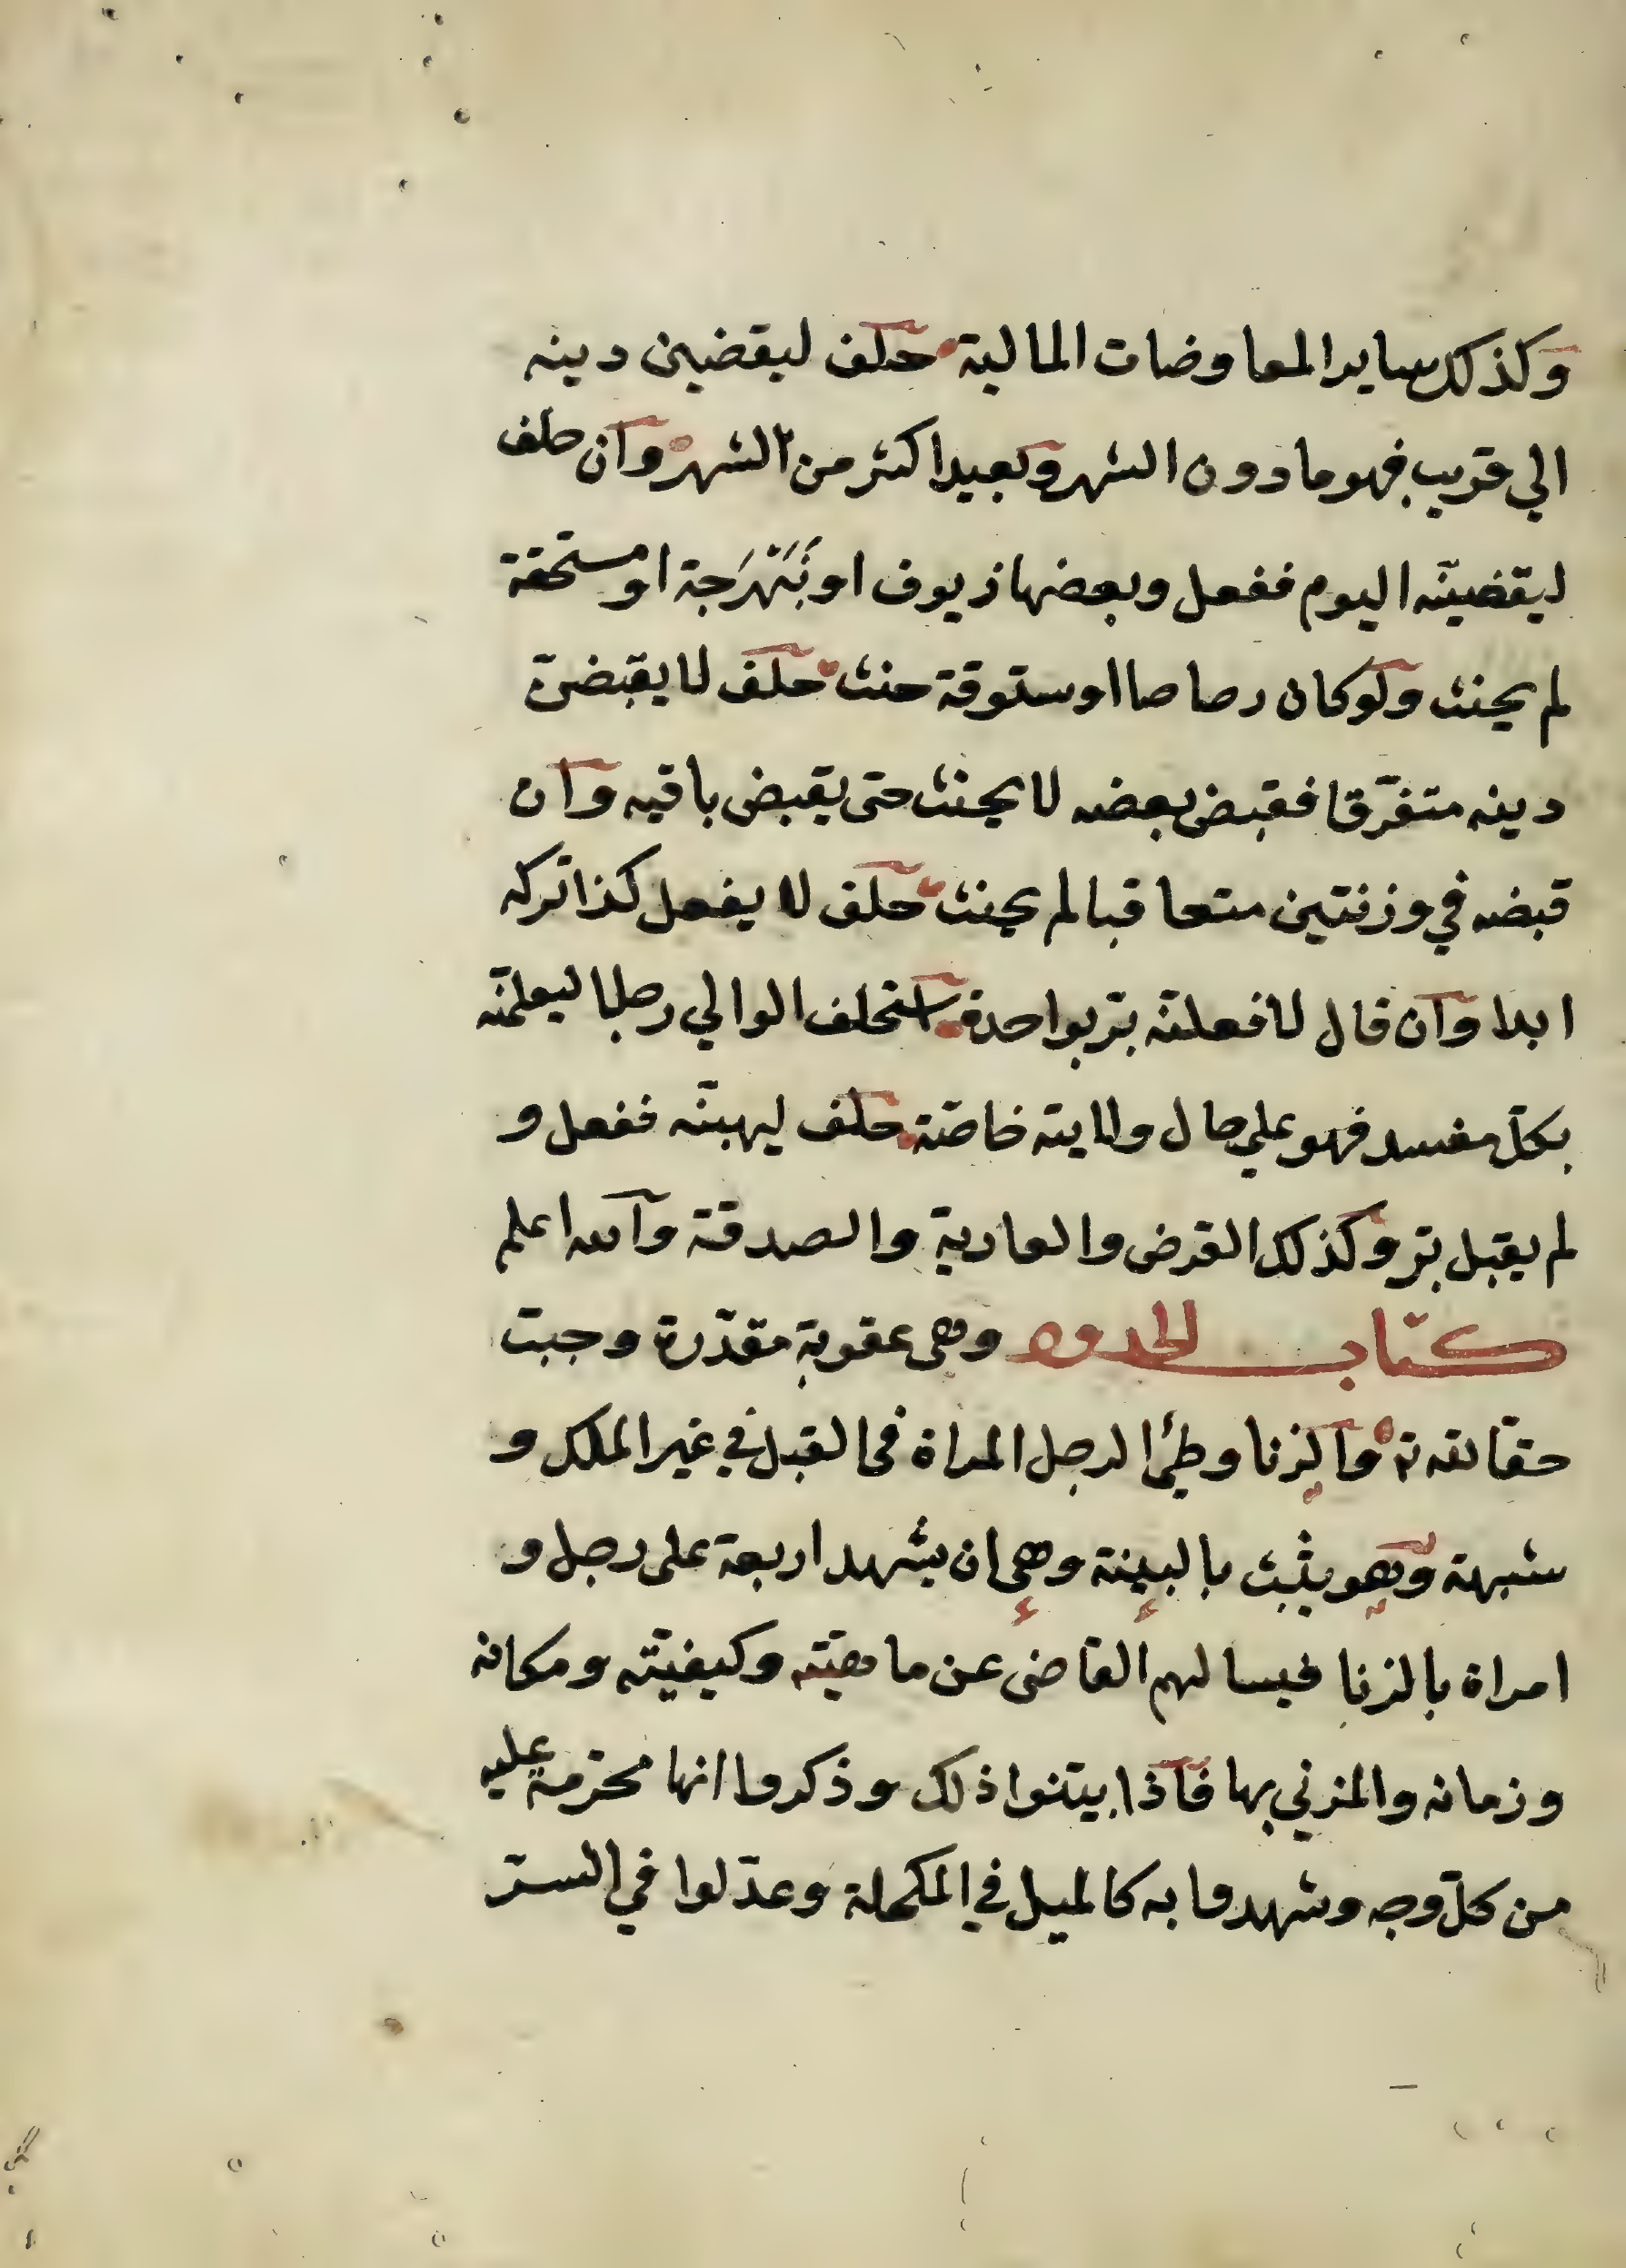 وكذلك ساير المعاوضات المالية حلف ليقضين دينه
الي قريب فهو ما دون الشهر وبعيد اكثر من الشهر وان حلف
ليقضينّه اليوم ففعل وبعضها زيوف او نَبَهْرَجة او مستحقة
لم يحنث ولو كان رصاصا او ستوقة حنث حلف لا يقبضنّ
دينه متفرّقا فقبض بعضه لا يحنث حتى يقبض باقيه وان
قبضه في وزنتين متعاقبا لم يحنث حلف لا يفعل كذا تركه
ابدا وان قال لافعلنّه برّ بواحدة استحلف الوالي رجلا ليعلمنّه
بكلّ مفسد فهو علي حال ولايته خاصّة حلف ليهبنّه ففعل و
لم يقبل برّ وكذلك القرض والعارية والصدقة والله اعلم
كتاب الحدود وهي عقوبة مقدّرة وجبت
حقّا لله تع والزنا وطئ الرجل المراة في القبل في غير الملك و
شبهة وهو يثبت بالبينة وهي ان يشهد اربعة على رجل و
امراة بالزنا فيسالهم القاضي عن ماهيّته وكيفيّته ومكانه
وزمانه والمزني بها فاذا بيّنوا ذلك وذكروا انها محرّمة عليه
من كلّ وجه وشهدوا به كالميل في المكحلة وعدّلوا في السرّ